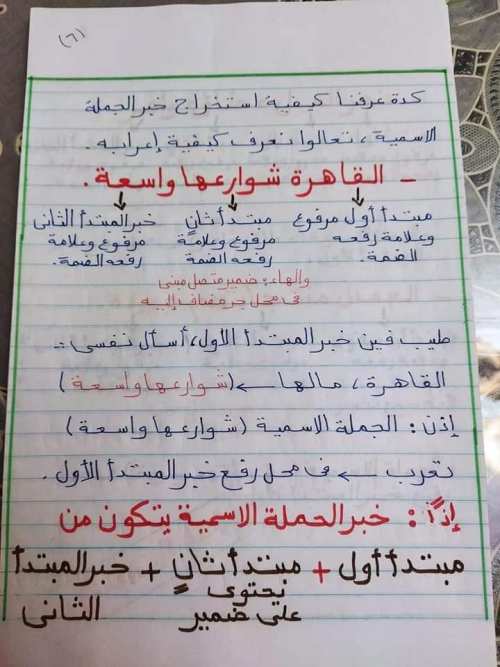 (٦)
كدة عرفنا كيفية استخراج خبر الجملة
الاسمية، تعالوا نعرف كيفية إعرابه.
- القاهرة شوارعها واسعة.
مبتدأ أول مرفوع
وعلامة رفعه
الضمة.
مبتدأ ثانٍ
مرفوع وعلامة
رفعه الضمة
خبر المبتدأ الثانى
مرفوع وعلامة
رفعه الضمة.
والهاء: ضمير متصل مبنى
فى محل جر مضاف إليه
طيب فين خبر المبتدأ الأول، أسأل نفسى:-
القاهرة، مالها ← (شوارعها واسعة)
إذن: الجملة الاسمية (شوارعها واسعة)
تعرب ← فى محل رفع خبر المبتدأ الأول.
إذاً: خبر الجملة الاسمية يتكون من
مبتدأ أول + مبتدأ ثانٍ + خبر المبتدأ
يحتوى
على ضمير
الثانى